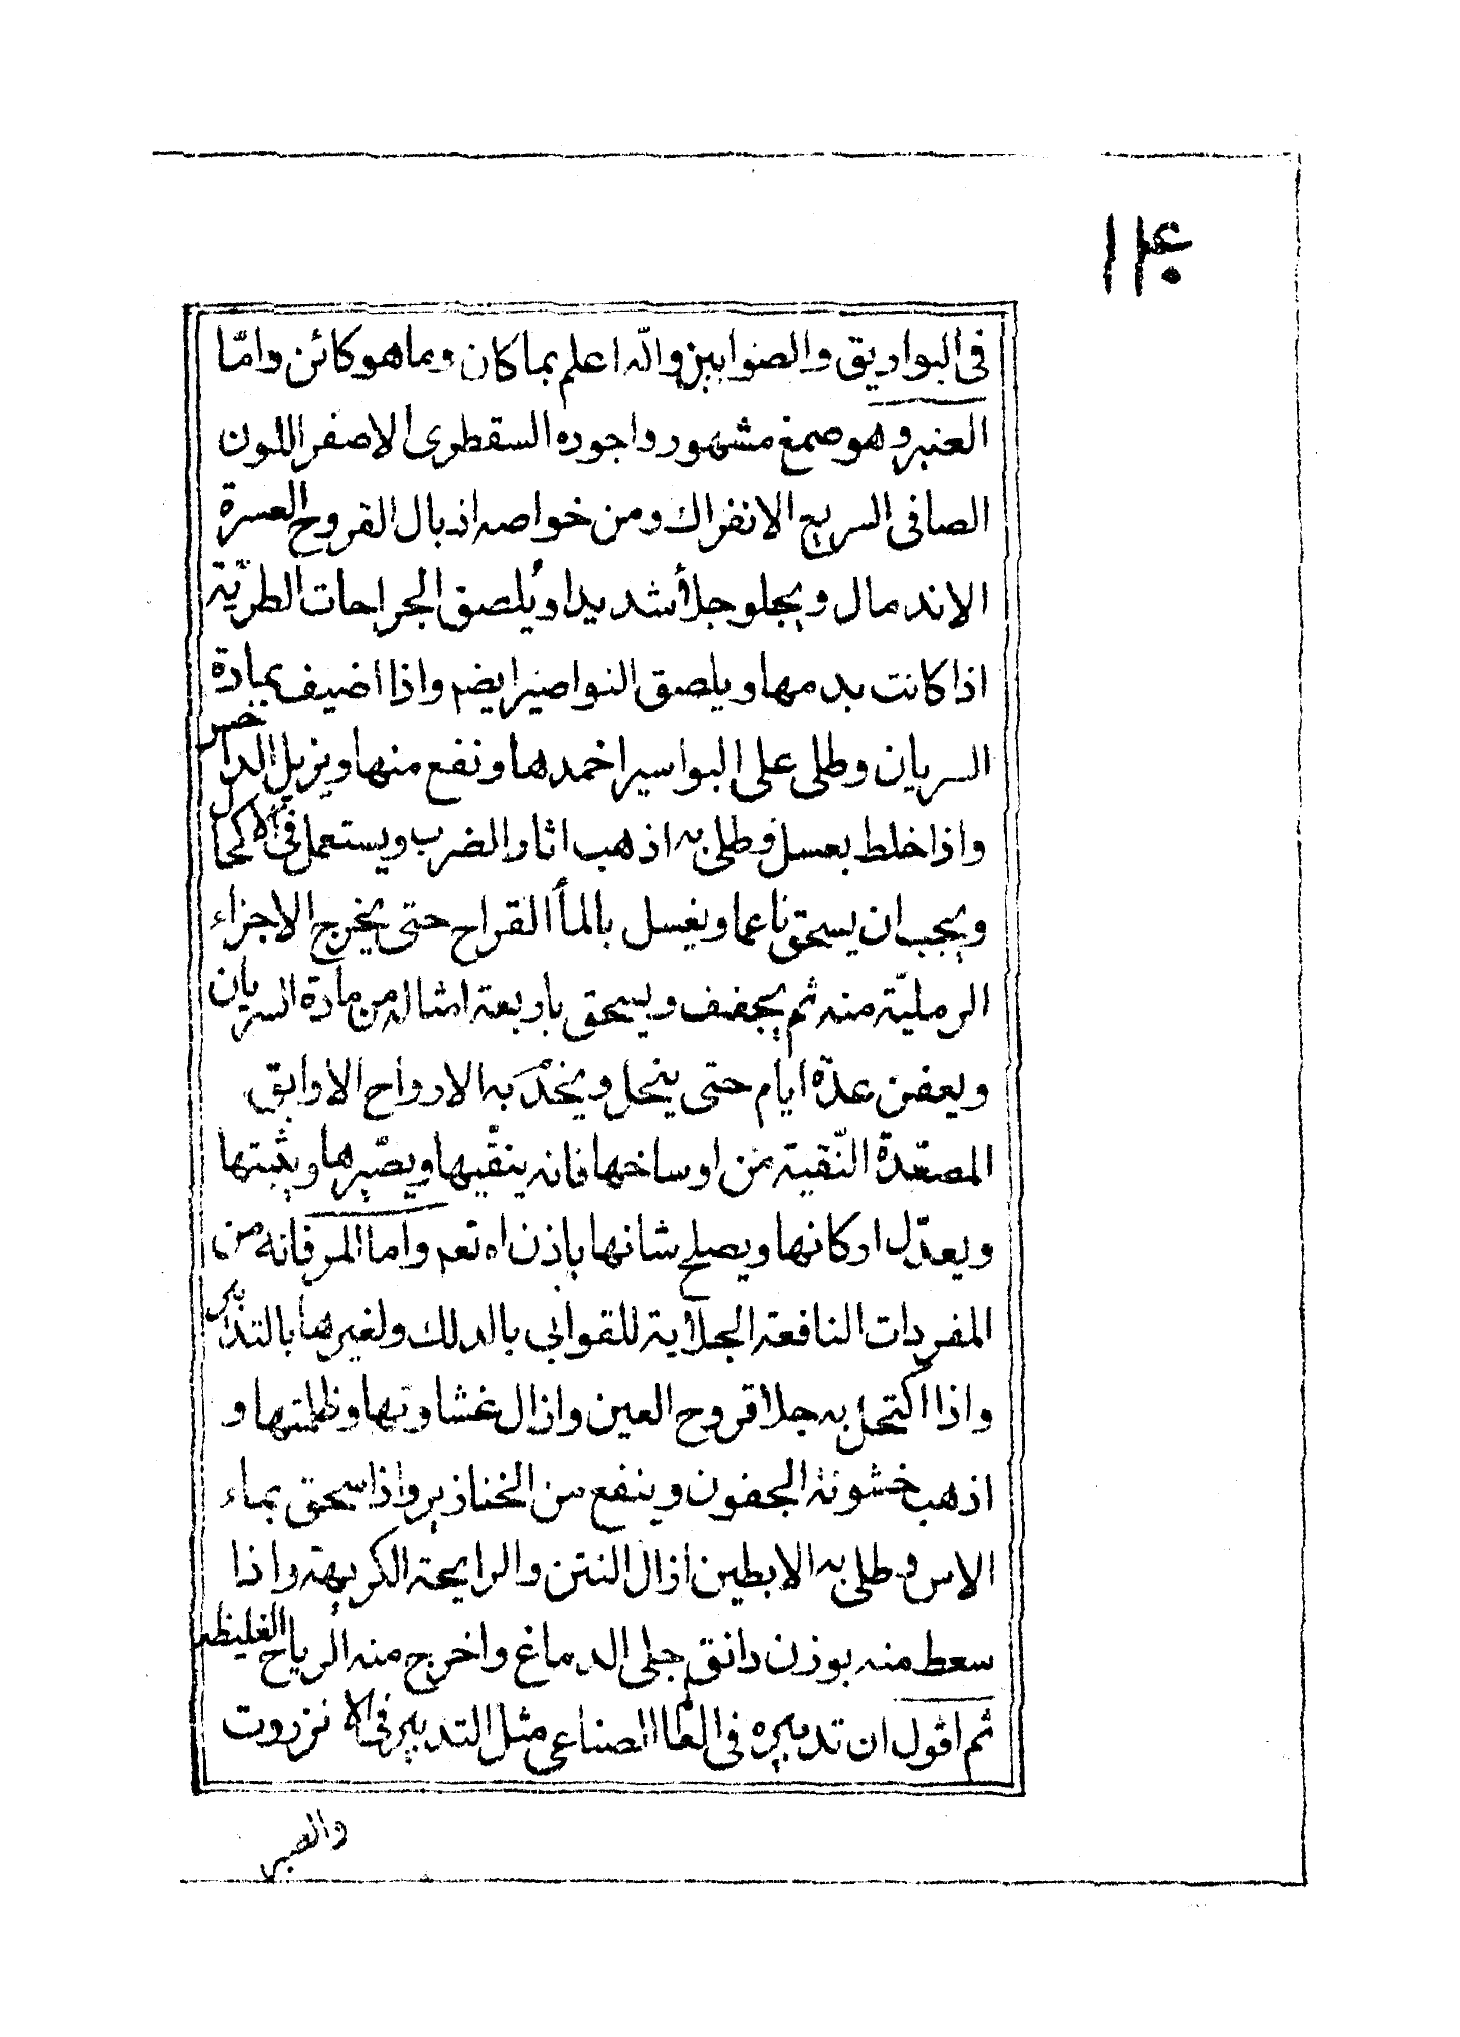 ١١٤
في البواريق والصنوابين والله اعلم بما كان وما هو كائن وامّا
العنبر وهو صمغ مشهور واجوده السقطرى الاصفر اللون
الصافى السريع الانفراك ومن خواصه اذبال القروح العسرة
الاندمال ويجلو جلأ شديدا ويُلصق الجراحات الطريّة
اذا كانت بدمها ويلصق النواصير ايضم واذا اضيف بمادة
السريان وطلى على البواسير اخمدها ونفع منها ويزيل الداحس
واذا خلط بعسل وطلى به اذهب اثار الضرب ويستعمل في الاكحال
ويجب ان يسحق ناعما ويغسل بالمأ القراح حتى يخرج الاجزاء
الرمليّة منه ثم يجفف ويسحق باربعة امثاله من مادة السريان
ويعفن عدّه ايام حتى ينحل ويخدّ به الارواح الاوابق
المصعّدة النّقية من اوساخها فانه ينقّيها ويصّيرها ويثبتها
ويعدّل اركانها ويصلح شانها باذن اه تعم واما المر فانه من
المفردات النافعة الجلأية للقوابي بالدلك ولغيرها بالتدابير
واذا اكتحل به جلا قروح العين وازال غشاوتها وظلمتها و
اذهب خشونة الجفون وينفع من الخنازير واذا سحق بماء
الاس وطلى به الابطين ازال النتن والرايحة الكريهة واذا
سعط منه بوزن دانق جلى الدماغ واخرج منه الرياح الغليظه
ثم اقول ان تدبيره في الصناعي مثل التدبير في الانزروت
والصبر